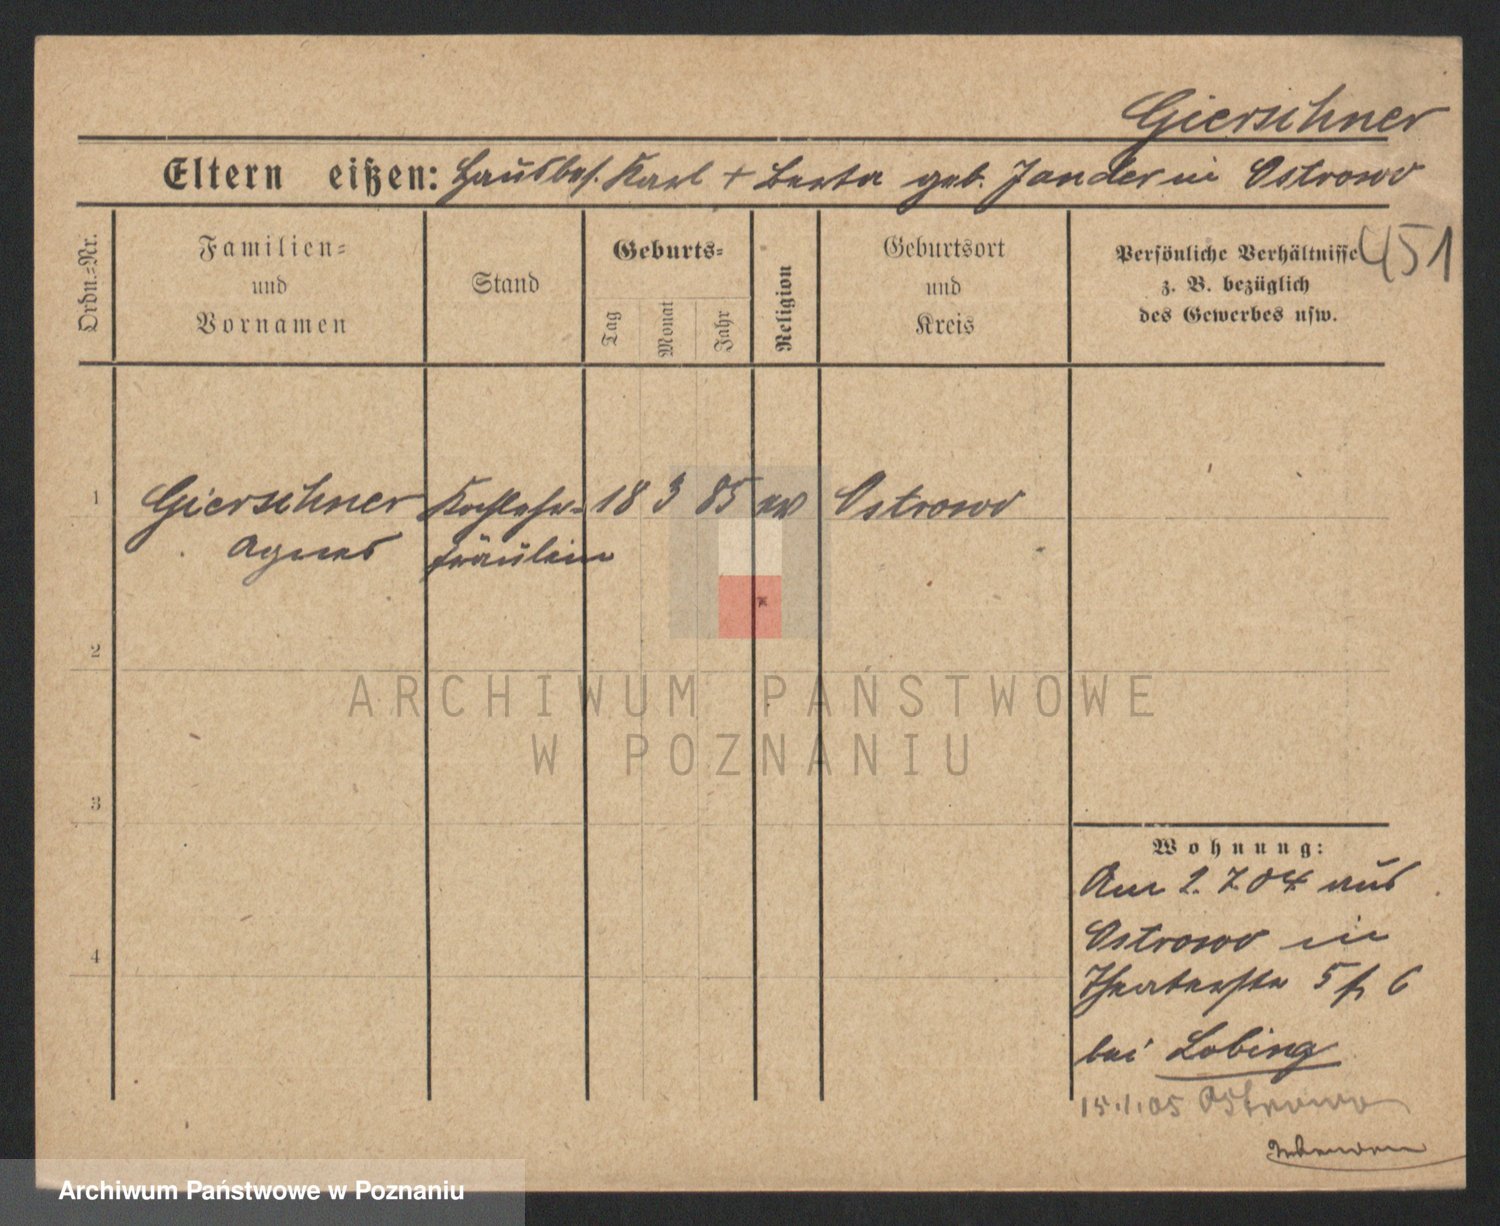 Gierschner
Eltern eißen: Hausbes. Karl + Berta geb. Jander in Ostrowo
451
Ordn.-Nr.
Familien-
und
Vornamen
Stand
Geburts-
Tag
Monat
Jahr
Religion
Geburtsort
und
Kreis
Persönliche Verhältnisse
z. B. bezüglich
des Gewerbes usw.
1 Gierschner Kochlehr- 18 3 85 ev Ostrowo
Agnes fräulein
2
ARCHIWUM PAŃSTWOWE
W POZNANIU
3
Wohnung:
Am 2. 7. 04 aus
Ostrowo in
4
Theaterstr 5 6
bei Lobing
15.1.05 Ostrowo
Archiwum Państwowe w Poznaniu